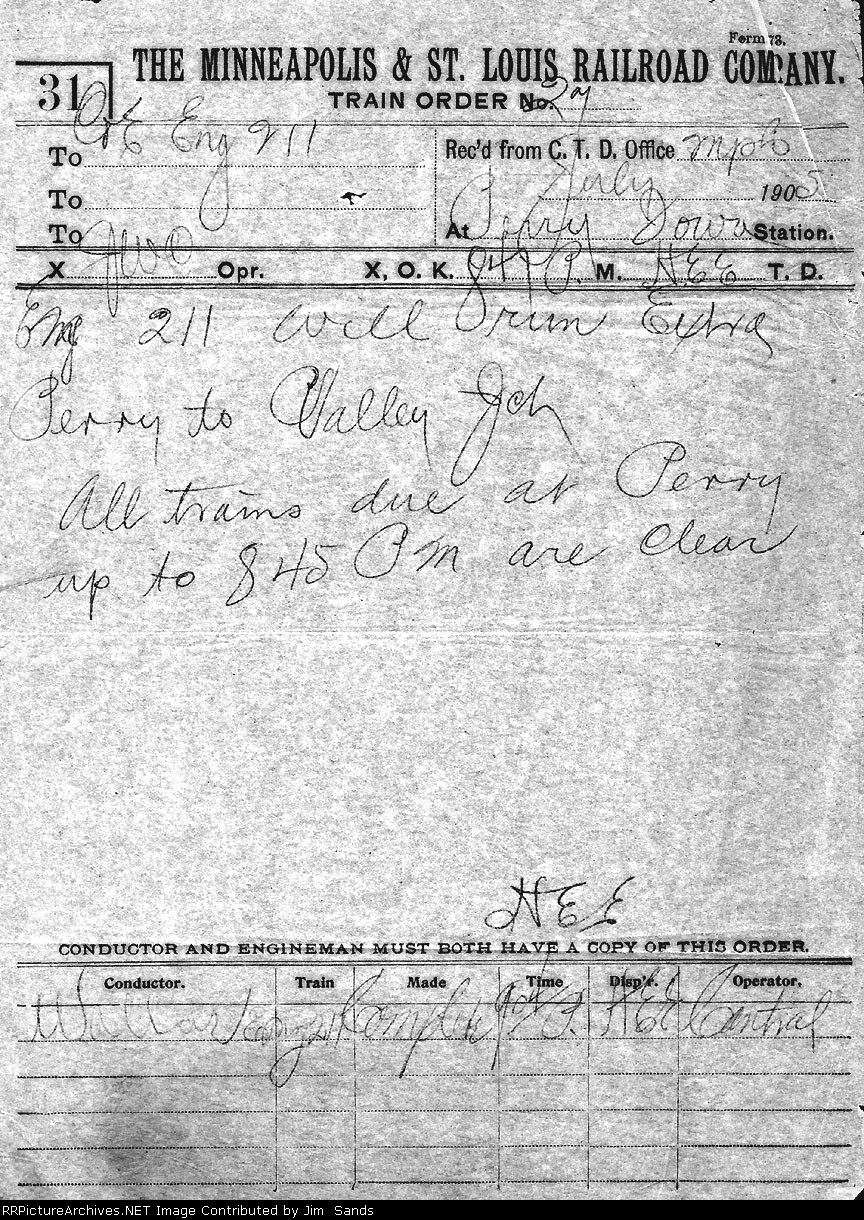 Form 78.
31
THE MINNEAPOLIS & ST. LOUIS RAILROAD COMPANY.
TRAIN ORDER No. 27
To C&E Eng 211
Rec'd from C. T. D. Office mpls
To
July 1905
To
At Perry Iowa Station.
X Opr. X, O. K. P. M. HEE T. D.
Eng 211 will run Extra
Perry to Valley Jch
All trains due at Perry
up to 845 PM are clear
HEE
CONDUCTOR AND ENGINEMAN MUST BOTH HAVE A COPY OF THIS ORDER.
Conductor. Train Made Time Disp'r. Operator.
Eng 211 Complete P. HEE Central
RRPictureArchives.NET Image Contributed by Jim Sands